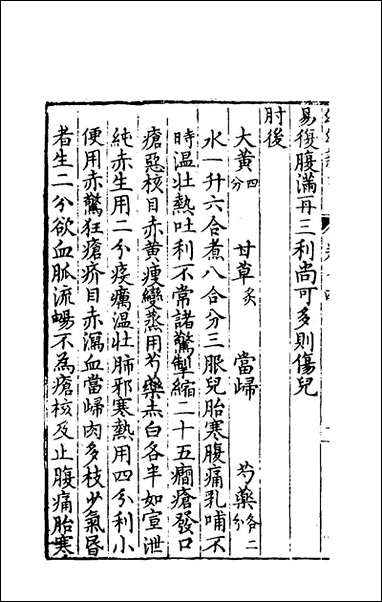 易復腹滿再三利尚可多則傷兒
肘後
大黃四分 甘草炙 當歸 芍藥各二分
水一升六合煮八合分三服兒胎寒腹痛乳哺不
時温壯熱吐利不常諸驚掣縮二十五癇瘡發口
瘡惡核目赤黃瘦孌蒸用芍藥赤白各半如宣泄
純赤生用二分痎癘温壯肺邪寒熱用四分利小
便用赤驚狂瘡疥目赤瀉血當歸肉多枝少氣昏
者生二分欲血脈流暢不為瘡核及止腹痛胎寒